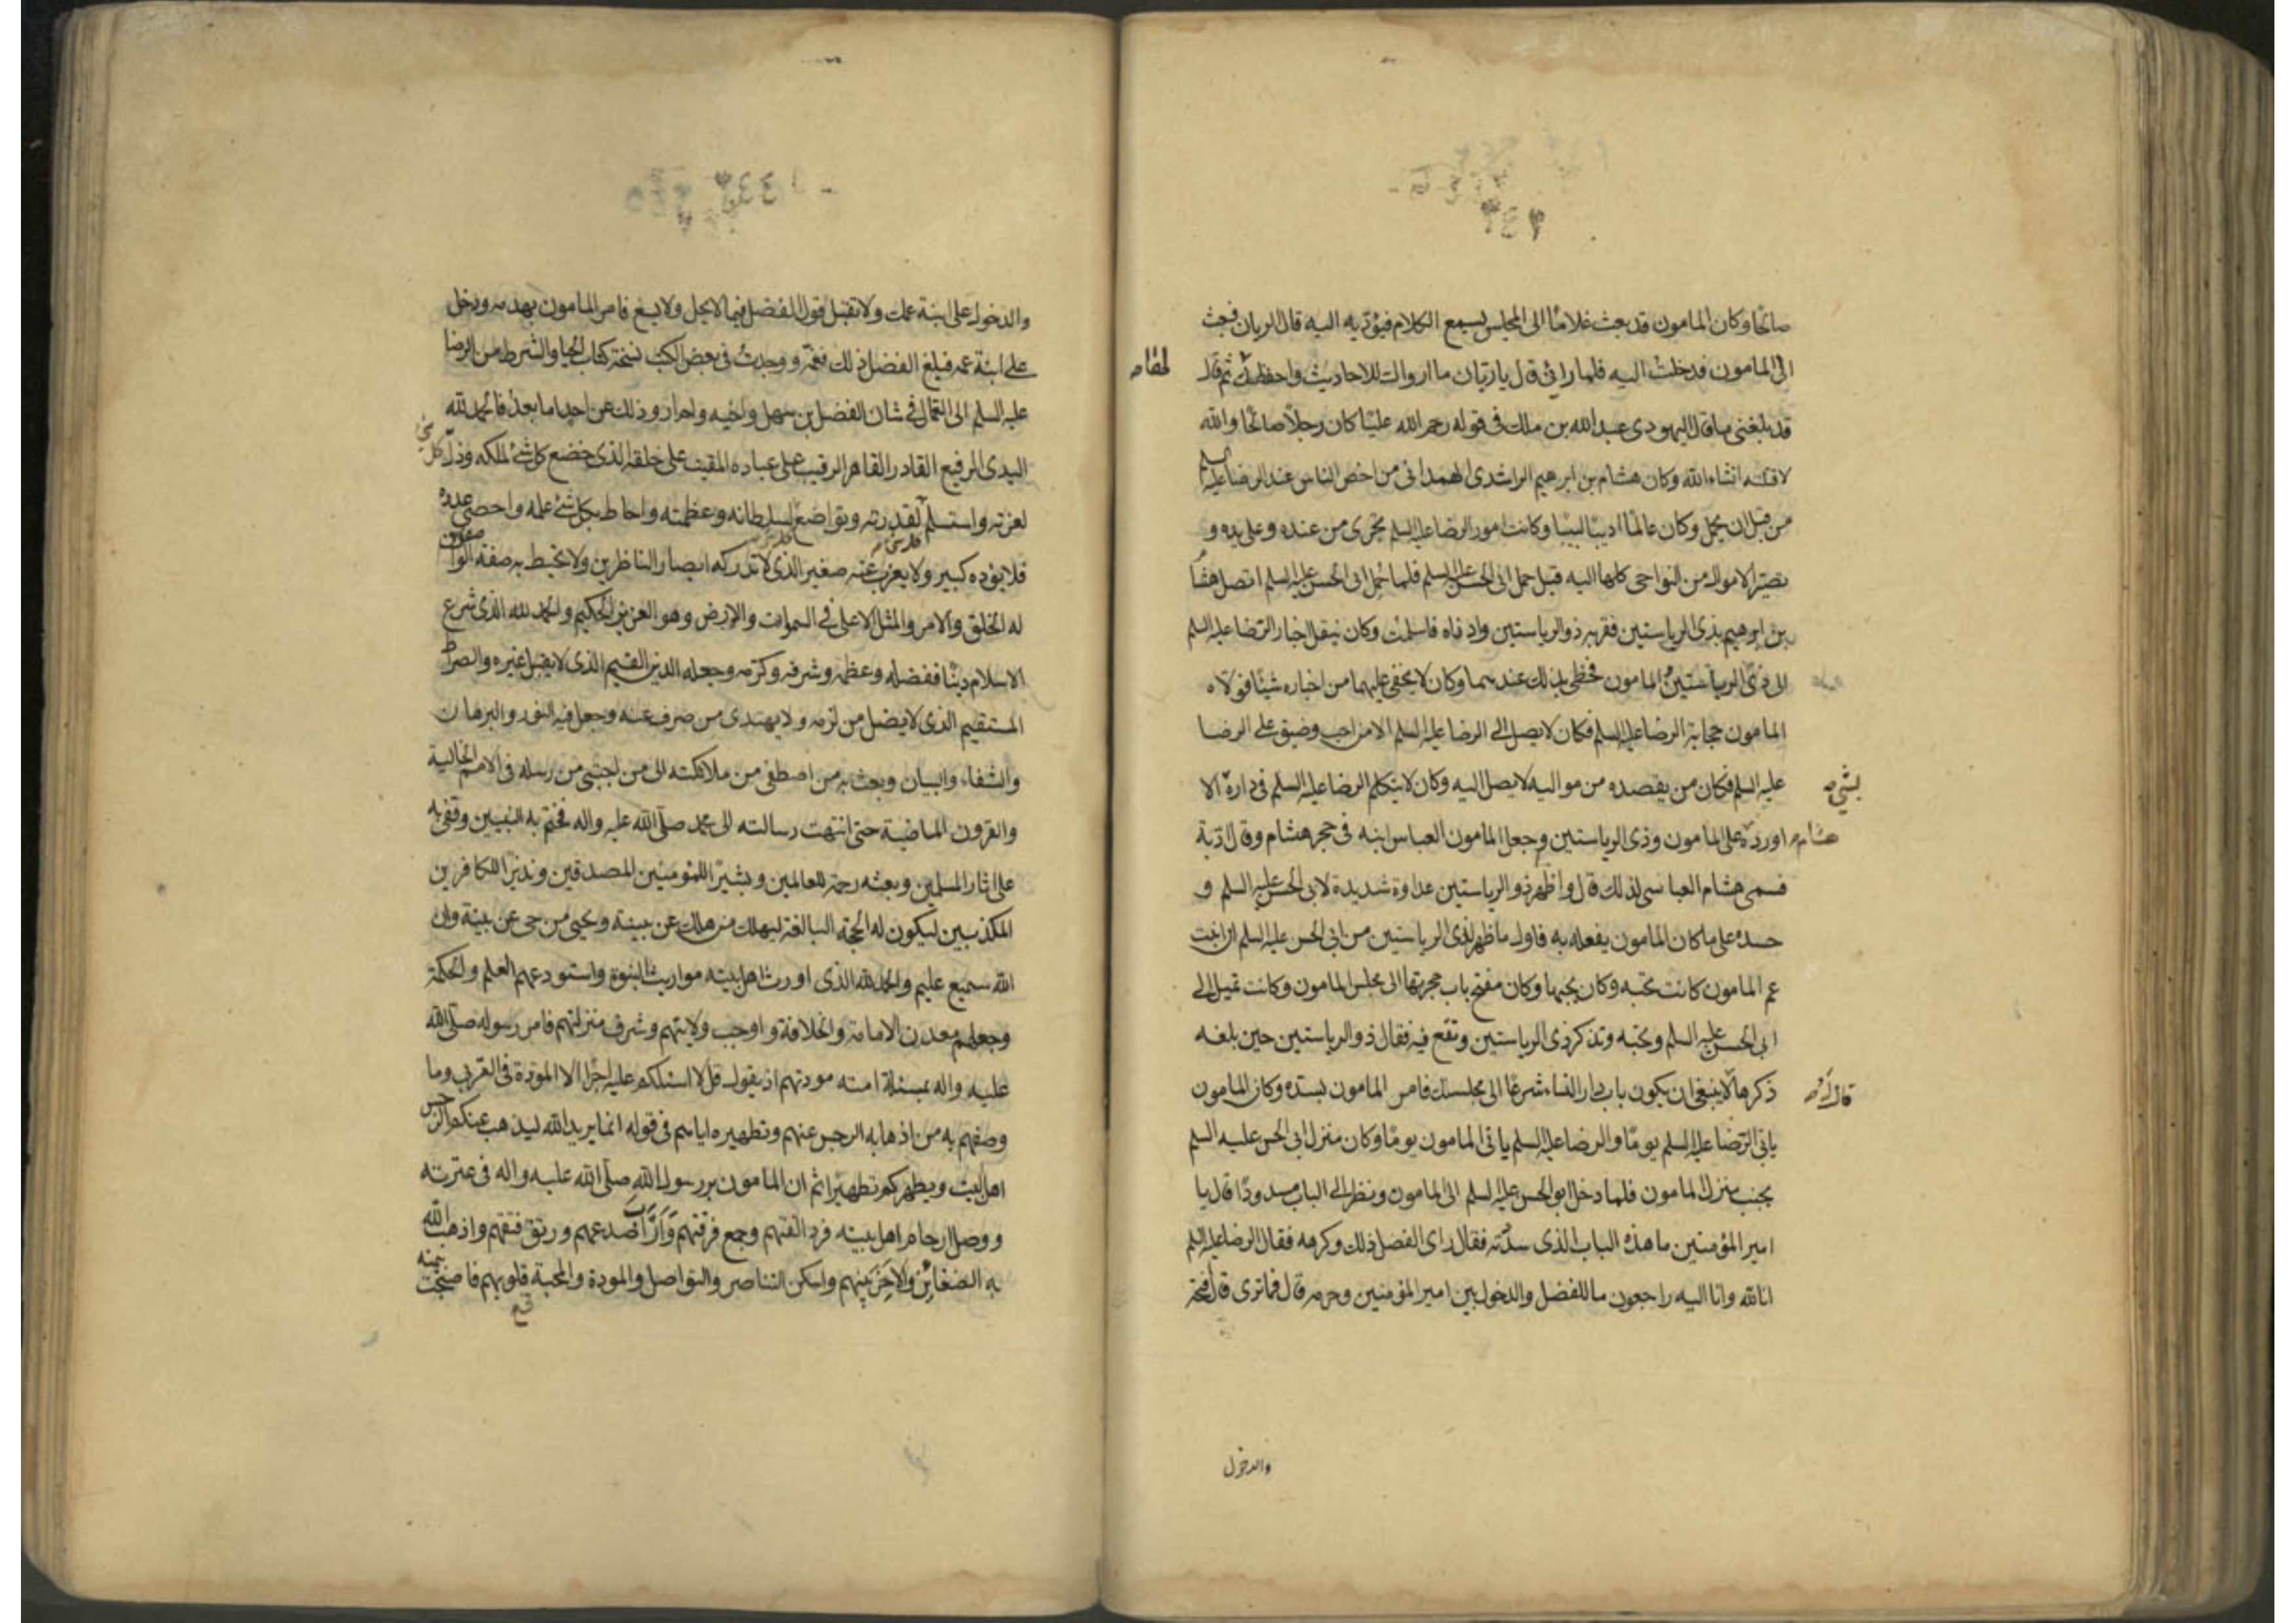 صالحا وكان المامون قد بعث غلاما الى المجلس يسمع الكلام فيؤديه اليه قال الريان فبعث
الى المامون فدخلت اليه فلما رانى قال يا ريان ما ارواك للاحاديث واحفظك لها ثم قال
قد بلغنى ما قال اليهودى عبد الله بن ملك فى قوله رحم الله عليا كان رجلا صالحا والله
لاقتلنه انشاء الله وكان هشام بن ابرهيم الراشدى الهمدانى من اخص الناس عند الرضا عليه السلم
من قبل ان يحمل وكان عالما اديبا لبيبا وكانت امور الرضا عليه السلم تجرى من عنده وعلى يده و
تصير الاموال من النواحى كلها اليه قبل حمل ابى الحسن عليه السلم فلما حمل ابى الحسن عليه السلم اتصل هشام
بن ابرهيم بذى الرياستين فقربه ذو الرياستين وادناه فاسلمت وكان ينقل اخبار الرضا عليه السلم
الى ذى الرياستين والمامون فحظى بذلك عندهما وكان لا يخفى عليهما من اخباره شيئا فولاه
المامون حجابة الرضا عليه السلم فكان لا يصل الى الرضا عليه السلم الا من احب وضيق على الرضا
عليه السلم فكان من يقصده من مواليه لا يصل اليه وكان لا يتكلم الرضا عليه السلم فى داره الا بشئ
هشام اورده على المامون وذى الرياستين وجعل المامون العباس ابنه فى حجر هشام وقال ادبه
فسمى هشام العباسى لذلك قال واظهر ذو الرياستين عداوة شديدة لابى الحسن عليه السلم و
حسده على ما كان المامون يفعله به فاول ما ظهر لذى الرياستين من ابى الحسن عليه السلم ان ابنت
عم المامون كانت تحبه وكان يحبها وكان مفتح باب حجرتها الى مجلس المامون وكانت تميل الى
ابى الحسن عليه السلم وتحبه وتذكر ذى الرياستين وتقع فيه فقال ذو الرياستين حين بلغه
ذكرها لا ينبغى ان يكون باب دار النساء شرعا الى مجلسك فامر المامون بسده وكان المامون
ياتى الرضا عليه السلم يوما والرضا عليه السلم ياتى المامون يوما وكان منزل ابى الحسن عليه السلم
بجنب منزل المامون فلما دخل ابو الحسن عليه السلم الى المامون ونظر الى الباب مسدودا قال يا
امير المؤمنين ما هذه الباب الذى سدته فقال راى الفضل ذلك وكرهه فقال الرضا عليه السلم
انا لله وانا اليه راجعون ما للفضل والدخول بين امير المؤمنين وحرمه قال فما ترى قال فتحه
والدخول
والدخول على ابنة عمك ولا تقبل قول الفضل فيما لا يحل ولا يسع فامر المامون بهدمه ودخل
على ابنة عمه فبلغ الفضل ذلك فغمه ووجدت فى بعض الكتب نسخة كتاب الحبا والشرط من الرضا
عليه السلم الى العمال فى شان الفضل بن سهل واخيه ولم ارو ذلك عن احد اما بعد فالحمد لله
البدى الرفيع القادر القاهر الرقيب على عباده المقيت على خلقه الذى خضع كل شئ لملكه وذل كل شئ
لعزته واستسلم لقدرته وتواضع لسلطانه وعظمته واحاط بكل شئ علمه واحصى عدده
فلا يؤده كبير ولا يعزب عنه صغير الذى لا تدركه ابصار الناظرين ولا تحيط به صفة الواصفين
له الخلق والامر والمثل الاعلى فى السموات والارض وهو العزيز الحكيم والحمد لله الذى شرع
الاسلام دينا ففضله وعظمه وشرفه وكرمه وجعله الدين القيم الذى لا يقبل غيره والصراط
المستقيم الذى لا يضل من لزمه ولا يهتدى من صرف عنه وجعل فيه النور والبرهان
والشفاء والبيان وبعث به من اصطفى من ملائكته الى من اجتبى من رسله فى الامم الخالية
والقرون الماضية حتى انتهت رسالته الى محمد صلى الله عليه واله فختم به النبيين وقفى به
على اثار المسلين وبعثه رحمة للعالمين وبشيرا للمؤمنين المصدقين ونذيرا للكافرين
المكذبين ليكون له الحجة البالغة ليهلك من هلك عن بينة ويحيى من حى عن بينة وان
الله سميع عليم والحمد لله الذى اورث اهل بيته مواريث النبوة واستودعهم العلم والحكمة
وجعلهم معدن الامامة والخلافة واوجب ولايتهم وشرف منزلتهم فامر رسوله صلى الله
عليه واله بمسئلة امته مودتهم اذ يقول قل لا اسئلكم عليه اجرا الا المودة فى القربى وما
وصفهم به من اذهابه الرجس عنهم وتطهيره اياهم فى قوله انما يريد الله ليذهب عنكم الرجس
اهل البيت ويطهركم تطهيرا ثم ان المامون بر رسول الله صلى الله عليه واله فى عترته
ووصل ارحام اهل بيته فرد الفتهم وجمع فرقتهم وراب صدعهم ورتق فتقهم واذهب الله
به الضغائن والاحن بينهم واسكن التناصر والتواصل والمودة والمحبة قلوبهم فاصبحت بيمنه